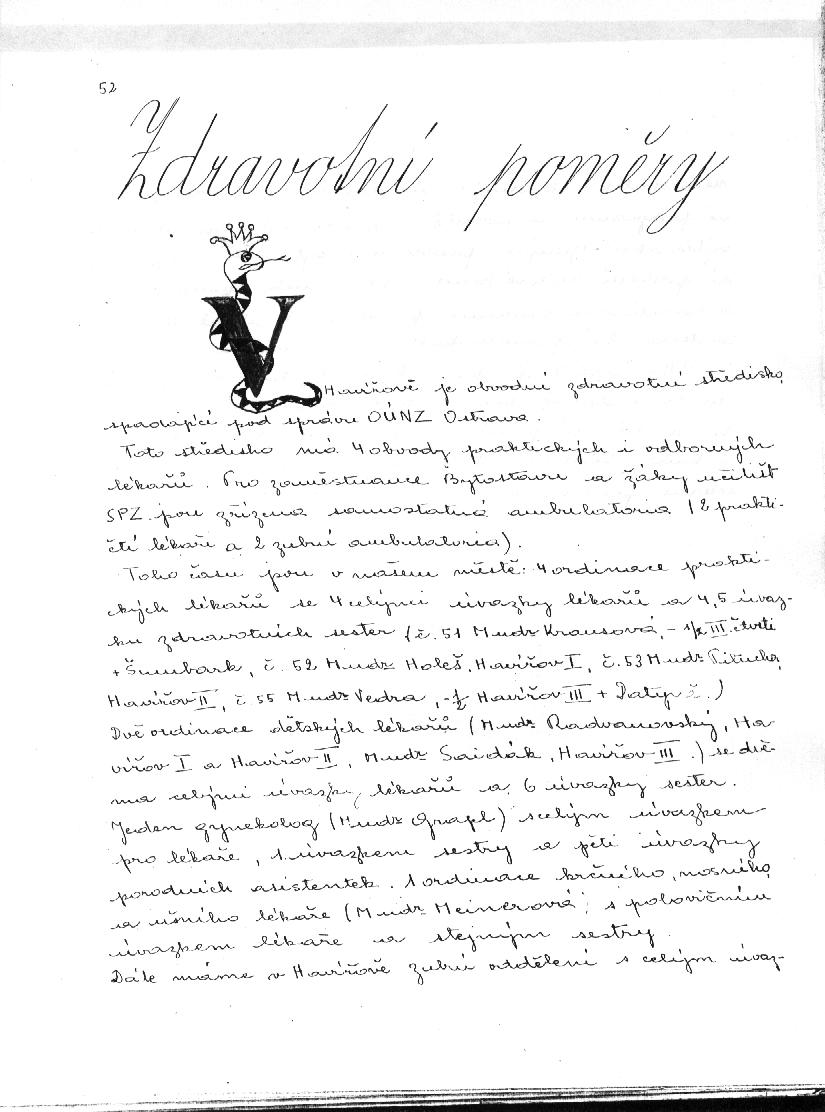 52
Zdravotní poměry
V Havířově je obvodní zdravotní středisko,
spadající pod správu OÚNZ Ostrava.
Toto středisko má 4 obvody praktických i odborných
lékařů. Pro zaměstnance Bytostavu a žáky učilišť
SPZ jsou zřízena samostatná ambulatoria (2 prakti-
čtí lékaře a 2 zubní ambulatoria).
Toho času jsou v našem městě: 4 ordinace prakti-
ckých lékařů se 4 celými úvazky lékařů a 4,5 úvaz-
ku zdravotních sester (č. 51 Mudr Krausová, - III. čtvrti
+ Šumbark, č. 52 Mudr Holeš, Havířov I, č. 53 Mudr
Havířov II, č 55 Mudr Vedra, Havířov III +
Dvě ordinace dětských lékařů (Mudr Radvanovský, Ha
vířov I a Havířov II, Mudr Saidák, Havířov III.) se dvě-
ma celými úvazky lékařů a 6 úvazky sester.
Jeden gynekolog (Mudr Gnapl) s celým úvazkem
pro lékaře, 1. úvazkem sestry a pěti úvazky
porodních asistentek. 1 ordinace krčního, nosního,
a ušního lékaře (Mudr Meinerová) s polovičním
úvazkem lékaře a stejným sestry.
Dále máme v Havířově zubní oddělení s celým úvaz-